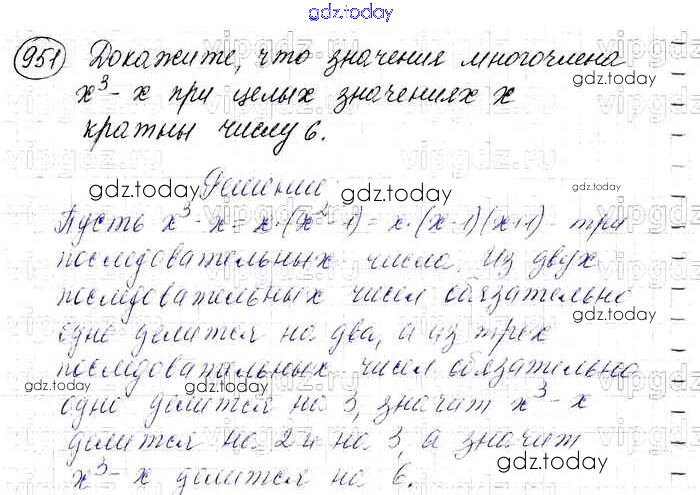 gdz.today
951 Докажите, что значения многочлена
gdz.today
x³ - x при целых значениях x
кратны числу 6.
gdz.today
Решение:
gdz.today
gdz.today
Пусть x³ - x = x·(x² - 1) = x·(x-1)(x+1) - три
последовательных числа. Из двух
последовательных чисел обязательно
gdz.today
одно делится на два, а из трех
последовательных чисел обязательно
gdz.today
одно делится на 3, значит x³ - x
gdz.today
делится на 2 и на 3, а значит
gdz.today
x³ - x делится на 6.